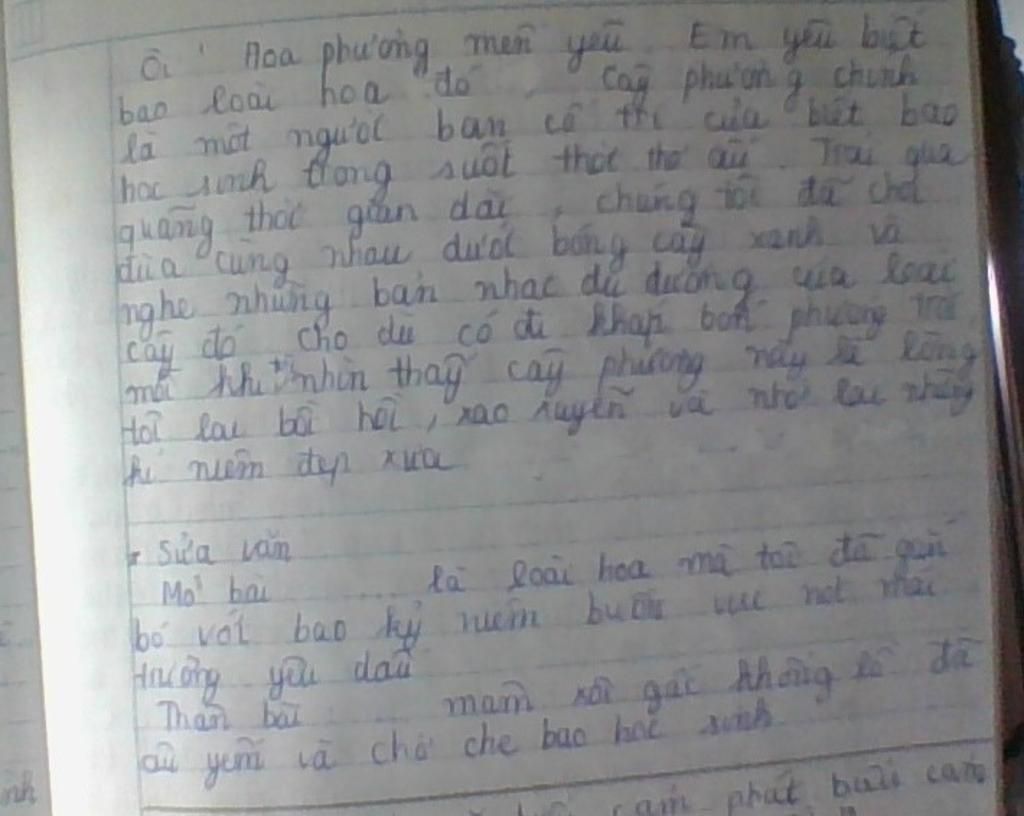 Ôi ! Hoa phượng mến yêu Em yêu biết
bao loài hoa đó . Cây phượng chính
là một người bạn cố tri của biết bao
học sinh trong suốt thời thơ ấu . Trải qua
quãng thời gian dài , chúng tôi đã chơi
đùa cùng nhau dưới bóng cây xanh và
nghe những bản nhạc du dương của loài
cây đó Cho dù có đi khắp bốn phương trời
mỗi khi nhìn thấy cây phượng này là lòng
tôi lại bồi hồi , xao xuyến và nhớ lại những
kỉ niệm đẹp xưa
Sửa văn
Mở bài .... là loài hoa mà tôi đã gắn
bó với bao kỷ niệm buồn vui nơi mái
trường yêu dấu
Thân bài .... mâm xôi gấc khổng lồ đã
âu yếm và chở che bao học sinh
cảm phát biểu cảm